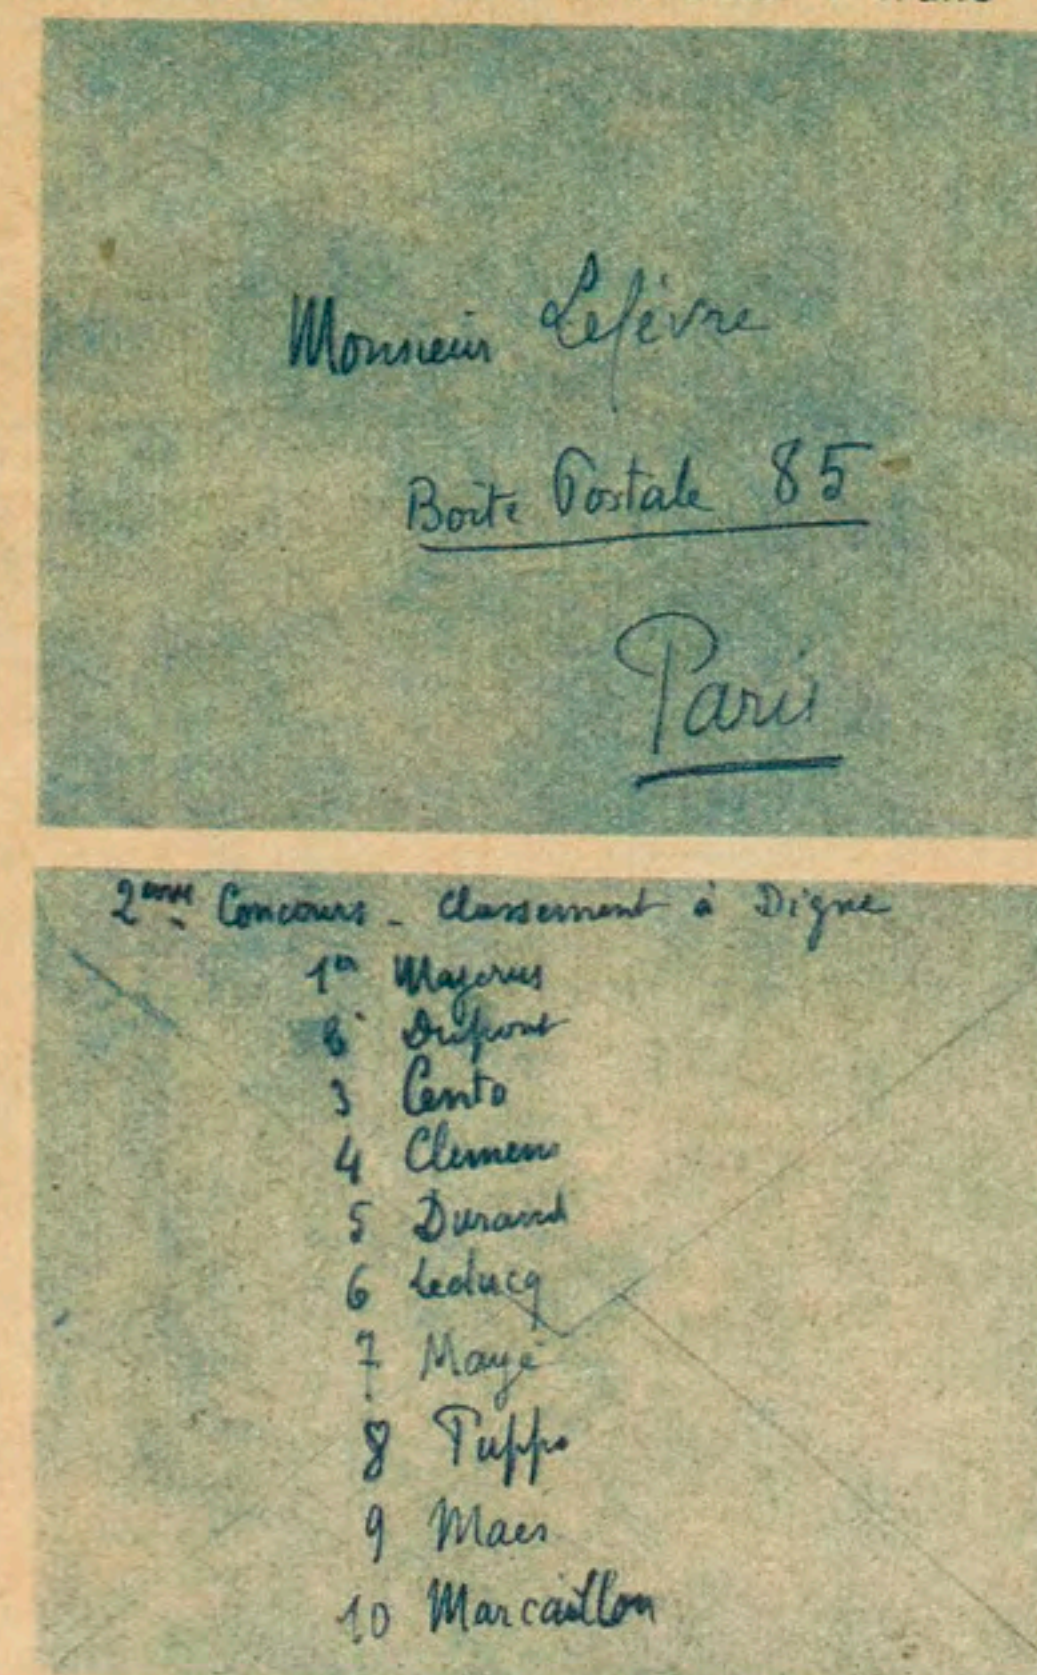 Monsieur Lefèvre
Boîte Postale 85
Paris
2ème Concours - Classement à Digne
1er Majerus
2 Dupont
3 Cento
4 Clemens
5 Durand
6 Leducq
7 Mayé
8 Puppo
9 Maes
10 Marcaillou